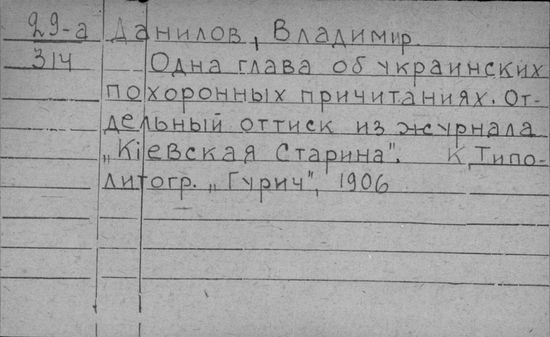 29-а Данилов, Владимир
314 Одна глава об украинских
похоронных причитаниях. От-
дельный оттиск из журнала
„Кіевская Старина". К, Типо-
литогр. „Гурич", 1906